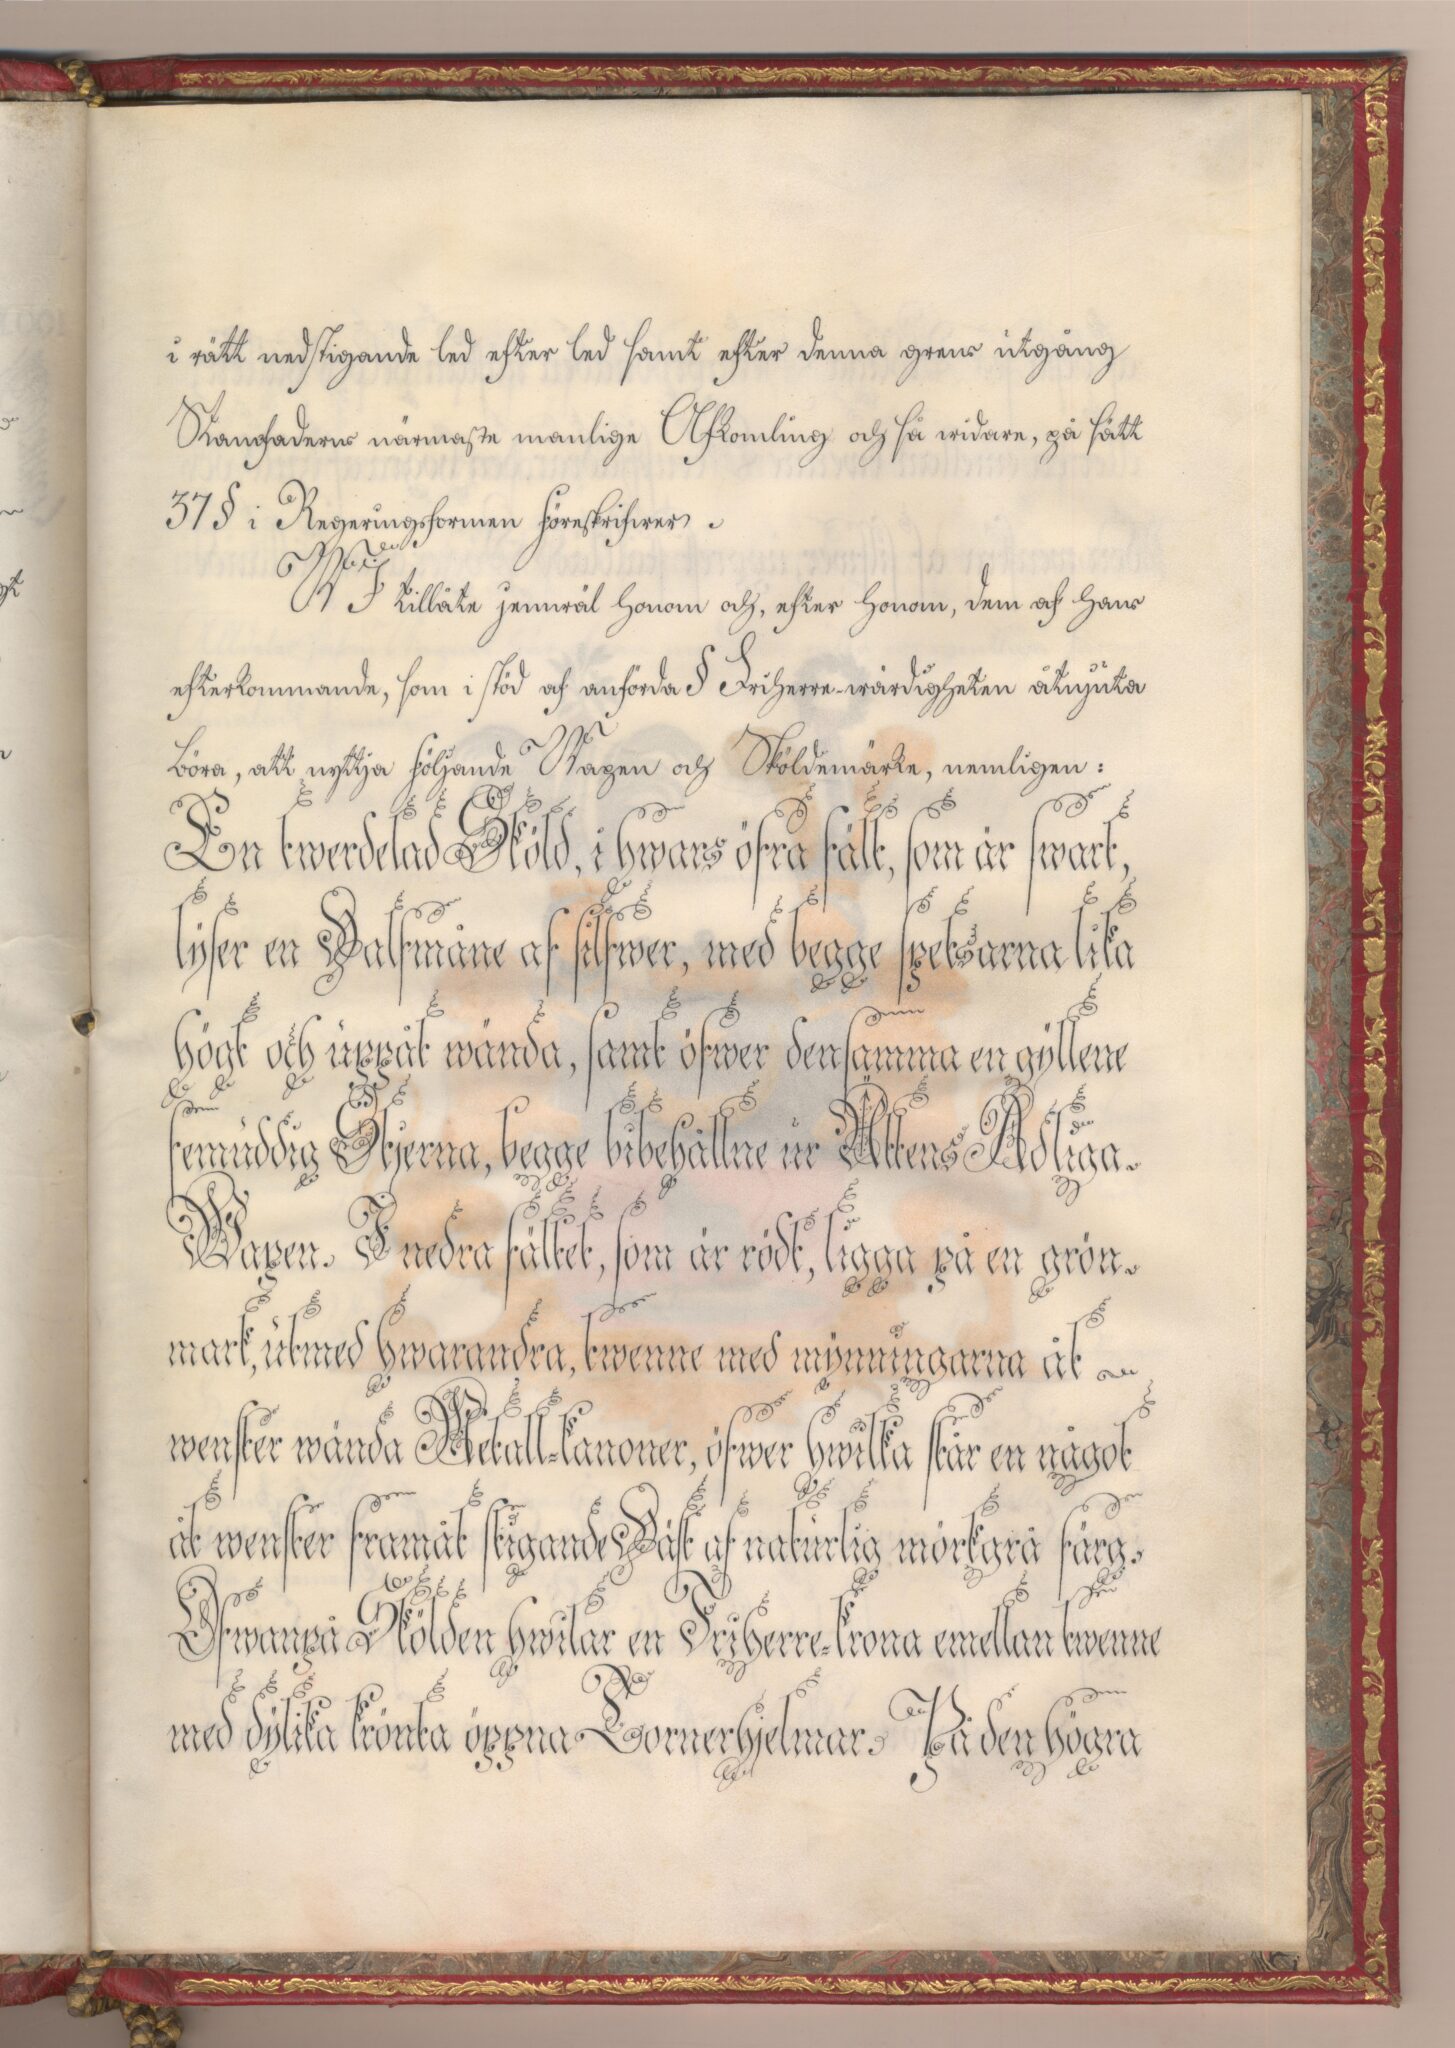 i rätt nedstigande led efter led samt efter denna grens utgång
Stamfaderns närmaste manlige Afkomling och så widare, på sätt
37 § i Regeringsformen föreskrifwer.
WJ tillåte jemwäl honom och, efter honom, dem af hans
efterkommande, som i stöd af anförda § Friherre-wärdigheten åtnjuta
böra, att nyttja följande Wapen och Sköldemärke, nemligen:
En twerdelad Sköld, i hwars öfra fält, som är swart,
lyser en Halfmåne af silfwer, med begge spetsarna lika
högt och uppåt wända, samt öfwer densamma en gyllene
femuddig Stjerna, begge bibehållne ur Ättens Adliga
Wapen. I nedra fältet, som är rödt, ligga på en grön
mark, utmed hwarandra, twenne med mynningarna åt
wenster wända Metall-kanoner, öfwer hwilka står en något
åt wenster framåt stigande Häst af naturlig mörkgrå färg.
Ofwanpå Skölden hwilar en Friherre-krona emellan twenne
med dylika krönta öppna Tornerhjelmar. På den högra